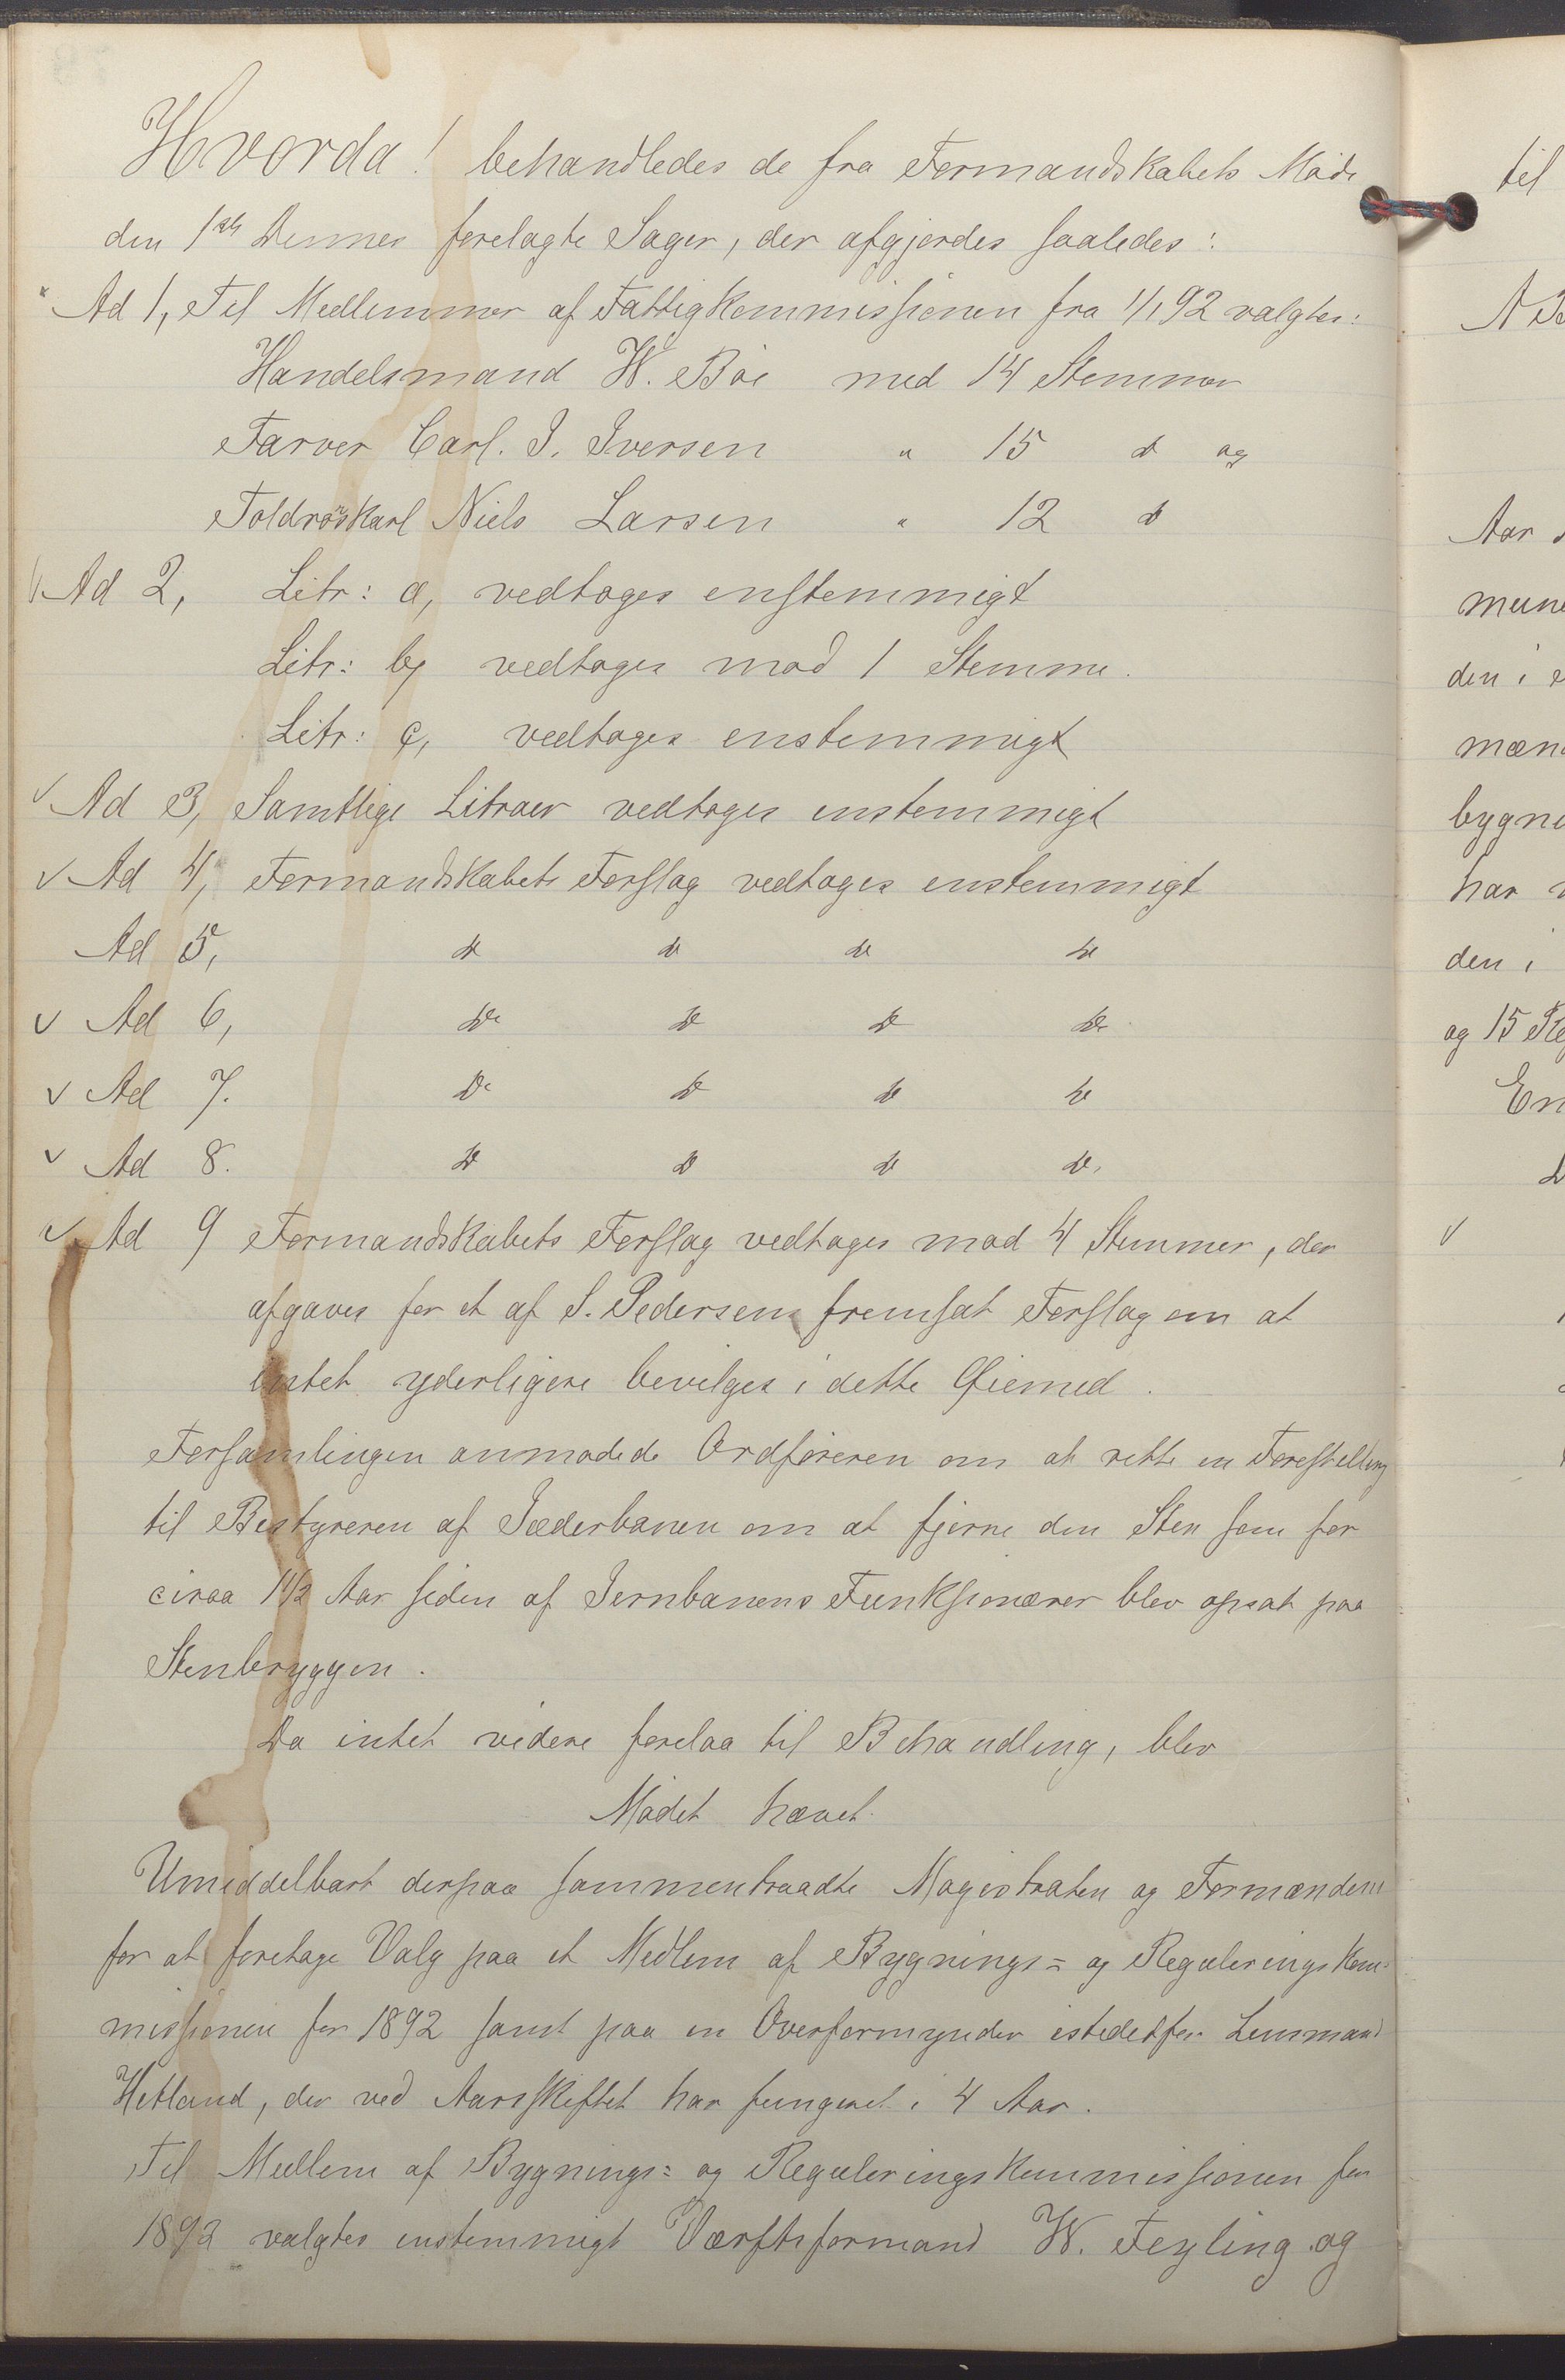 Hvorda! behandledes de fra Formandskabets Møde
den 1ste Dennes forelagte Sager, der afgjordes saaledes:
Ad 1, Til Medlemmer af Fattigkommissionen fra 1/1 92 valgtes:
Handelsmand W. Bøe med 14 Stemmer
Farver Carl. I. Iversen " 15 do og
Toldrorskarl Niels Larsen " 12 do
Ad 2, Litr: a, vedtoges enstemmigt
Litr: b, vedtoges mod 1 Stemme.
Litr: c, vedtoges enstemmigt
✓ Ad 3, Samtlige Litraer vedtoges enstemmigt
✓ Ad 4, Formandskabets Forslag vedtoges enstemmigt
Ad 5, do do do do
✓ Ad 6, Do Do Do Do
✓ Ad 7. Do Do do do
✓ Ad 8. Do Do do do.
✓ Ad 9 Formandskabets Forslag vedtoges mod 4 Stemmer, der
afgaves for et af S. Pedersen fremsat Forslag om at
intet yderligere bevilges i dette Øiemed.
Forsamlingen anmodede Ordføreren om at rette en Forestilling
til Bestyreren af Jæderbanen om at fjerne den Sten som for
circa 1 1/2 Aar siden af Jernbanens Funksionærer blev opsat paa
Stenbryggen.
Da intet videre forelaa til Behandling, blev
Mødet hævet.
Umiddelbart derpaa sammentraadte Magistraten og Formændene
for at foretage Valg paa et Medlem af Bygnings= og Reguleringskom=
missionen for 1892 samt paa en Overformynder istedetfor Lensmand
Hetland, der ved Aarsskiftet har fungeret i 4 Aar.
Til Medlem af Bygnings= og Reguleringskommissionen for
1892 valgtes enstemmigt Værftsformand W. Feyling og
til
Aar
den i
bygni
har
den i
og 15
✓